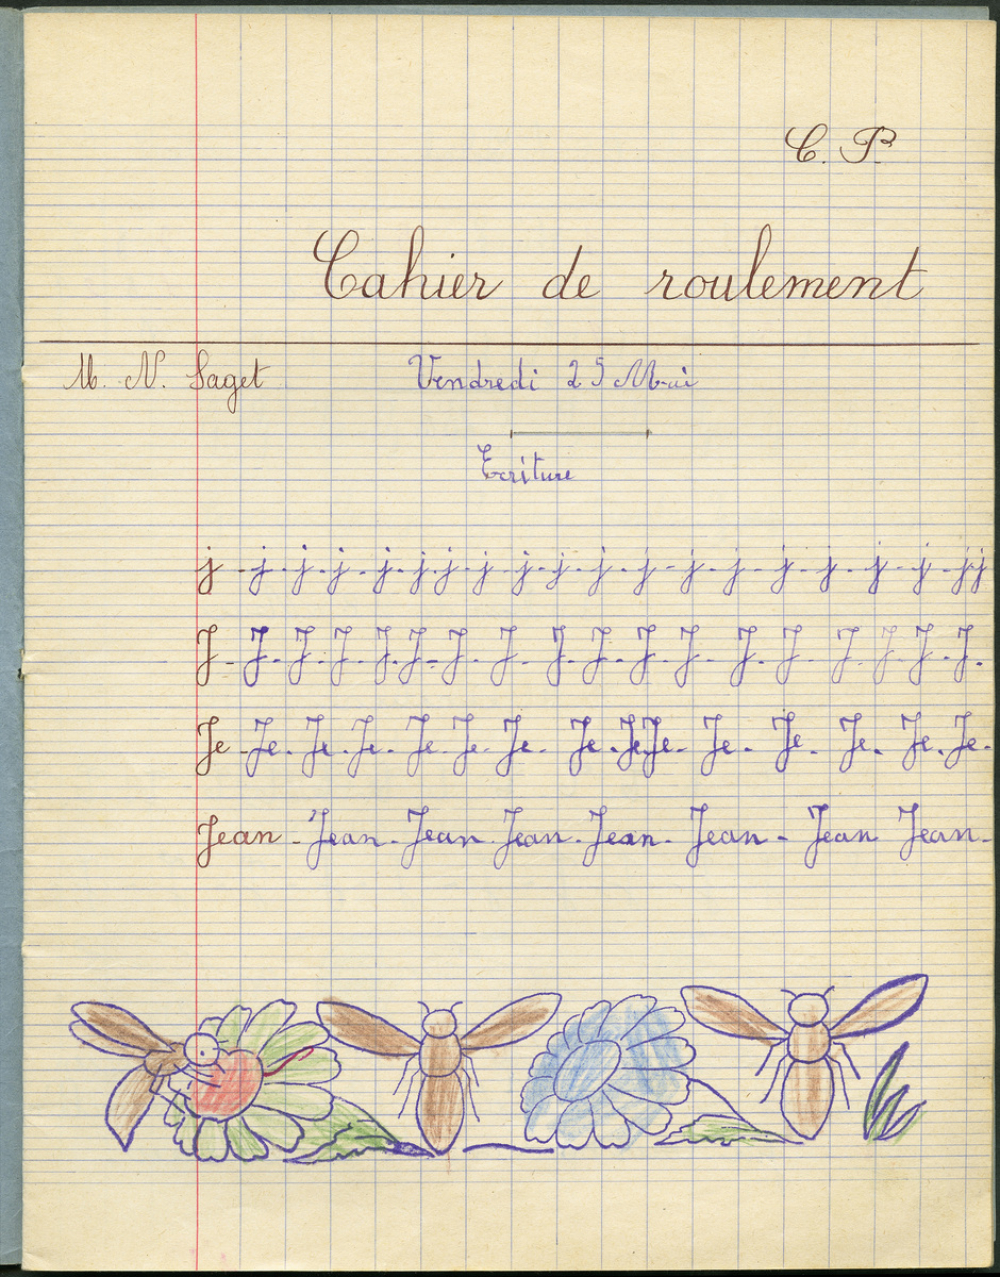 C. P.
Cahier de roulement
M. N. Saget
Vendredi 25 Mai
Ecriture
j - j - j - j - j - j - j - j - j - j - j - j - j - j - j - j - j - j - j j
J - J - J - J - J - J - J - J - J - J - J - J - J - J - J - J - J - J.
Je - Je - Je - Je - Je - Je - Je - Je - Je Je - Je - Je - Je - Je - Je -
Jean - Jean - Jean - Jean - Jean - Jean - Jean Jean -